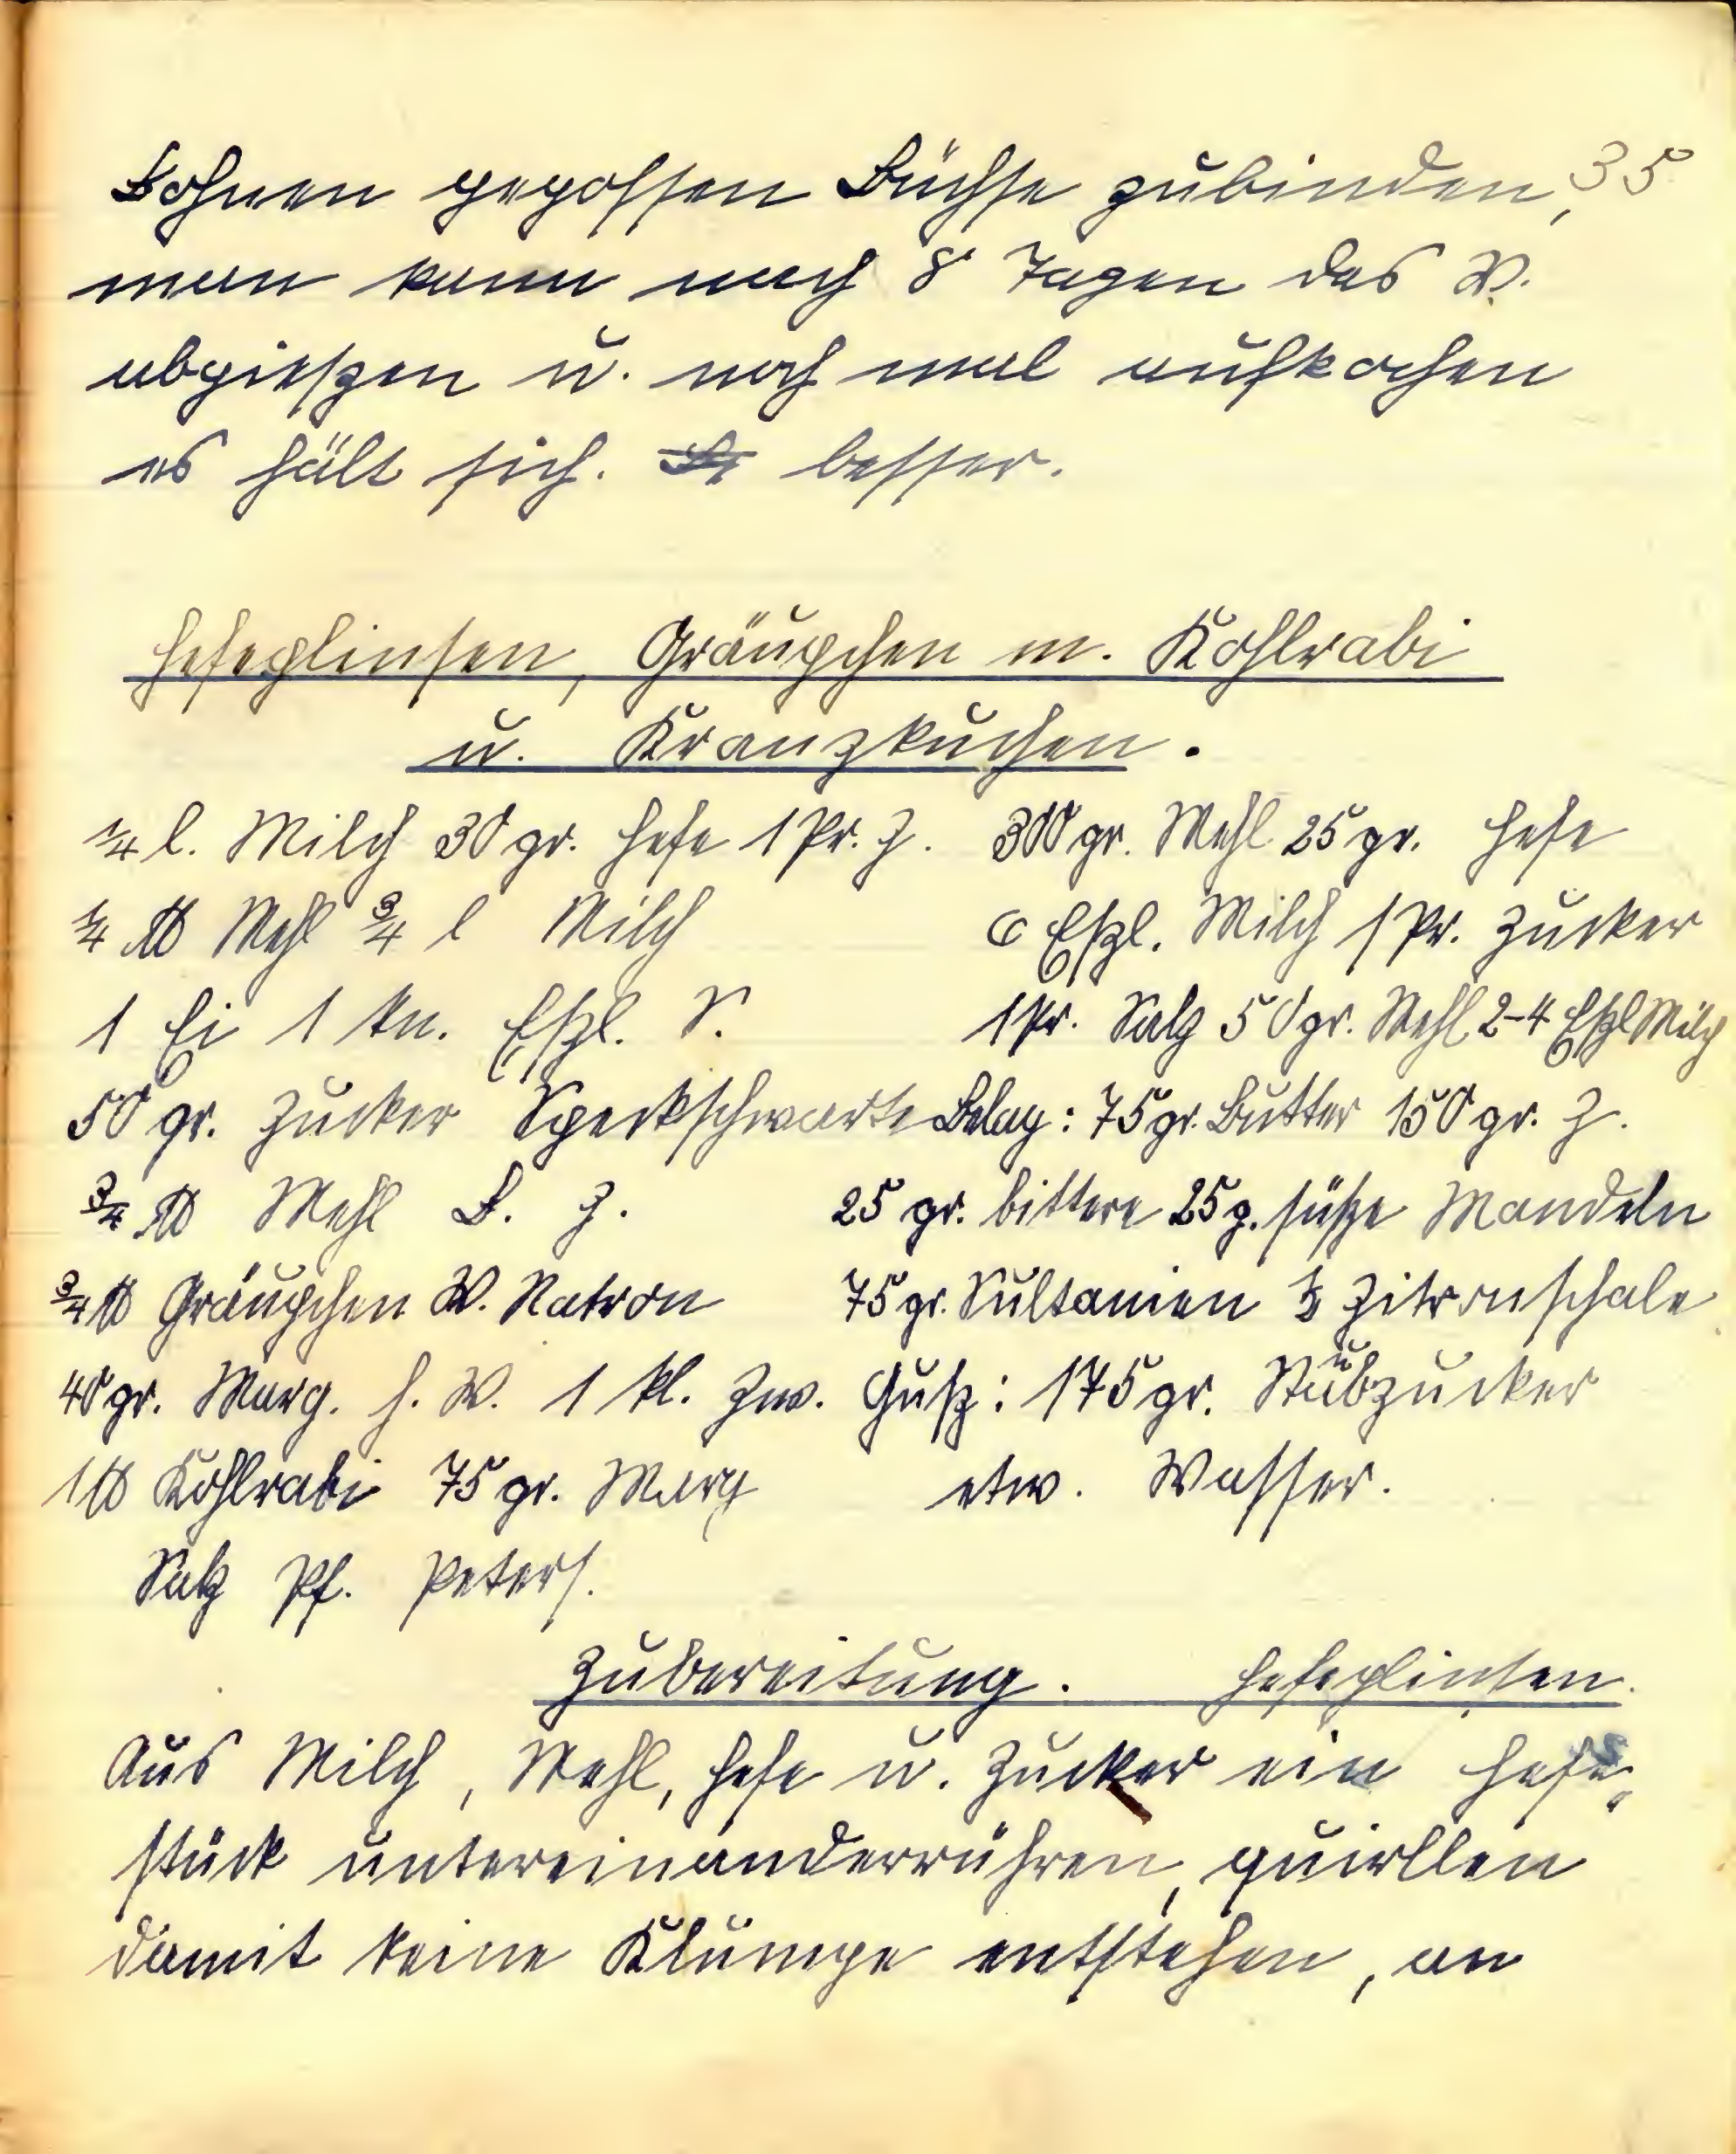 35
Bohnen gegossen Büchse zubinden,
man kann nach 8 Tagen das W.
abgießen u. noch mal aufkochen
es hält sich. besser.
Hefeplinsen, Gräupchen m. Kohlrabi
u. Kranzkuchen.
1/4 l. Milch 30 gr. Hefe 1 Pr. Z.
1/4 ℔ Mehl 3/4 l Milch
1 Ei 1 kn. Eßl. S.
50 gr. Zucker Speckschwarte
3/4 ℔ Mehl B. Z.
3/4 ℔ Gräupchen W. Natron
40 gr. Marg. h. W. 1 kl. Zw.
1 ℔ Kohlrabi 75 gr. Marg
Salz Pf. Peters.
300 gr. Mehl 25 gr. Hefe
6 Eßl. Milch 1 Pr. Zucker
1 Pr. Salz 50 gr. Mehl 2-4 Eßl Milch
Belag: 75 gr. Butter 150 gr. Z.
25 gr. bittere 25 g. süße Mandeln
75 gr. Sultanien 1/2 Zitronschale
Guß: 175 gr. Stäubzucker
etw. Wasser.
Zubereitung. Hefeplinsen.
Aus Milch, Mehl, Hefe u. Zucker ein Hefe-
stück untereinanderrühren, quirllen
damit keine Klumpe entstehen, an